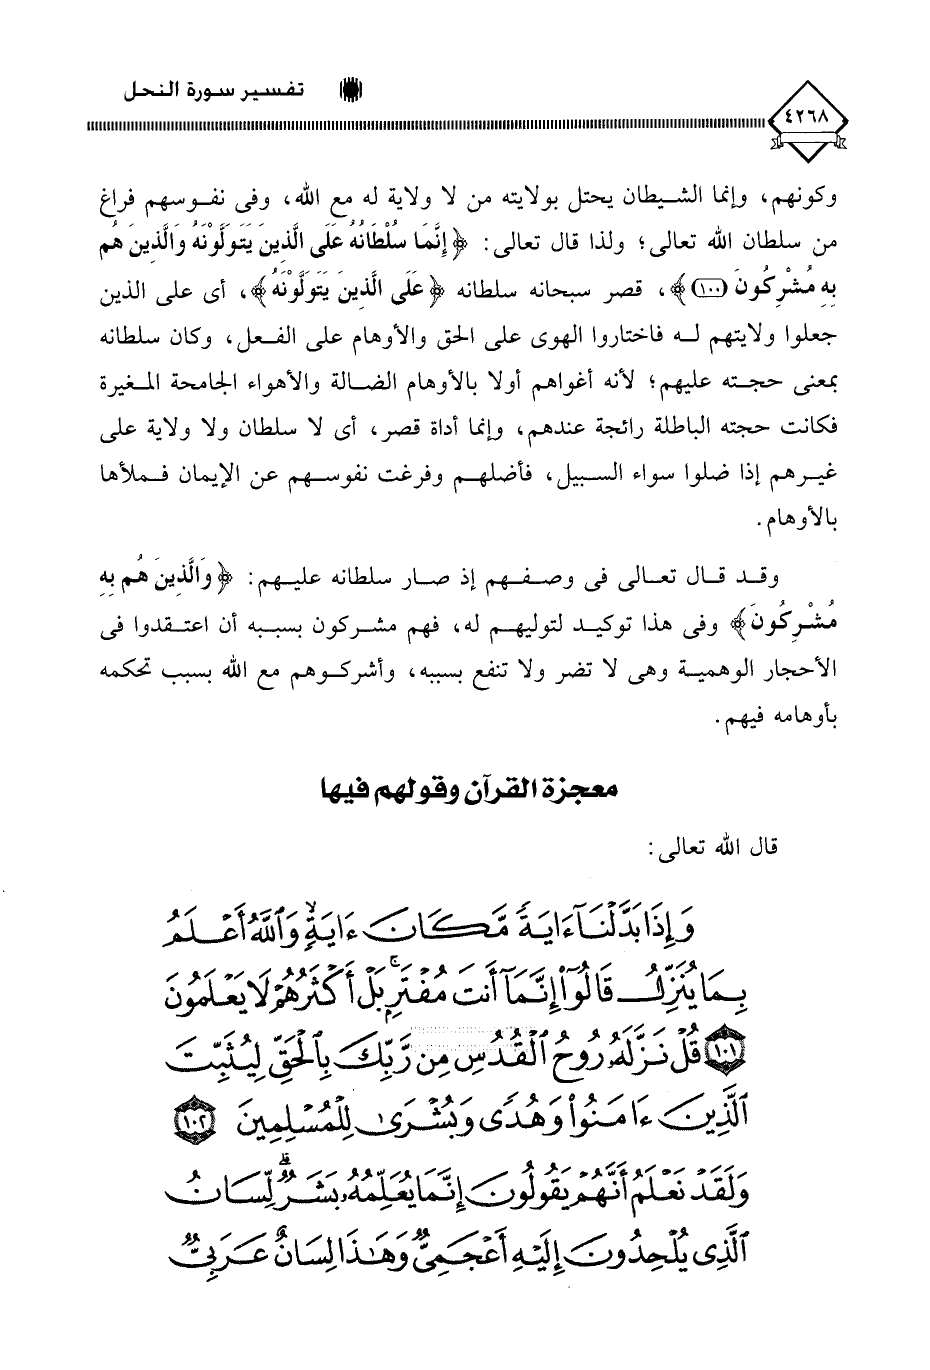 تفسير سورة النحل
٤٢٦٨
وكونهم، وإنما الشيطان يحتل بولايته من لا ولاية له مع الله، وفى نفوسهم فراغ
من سلطان الله تعالى؛ ولذا قال تعالى: ﴿ إِنَّمَا سُلْطَانُهُ عَلَى الَّذِينَ يَتَوَلَّوْنَهُ وَالَّذِينَ هُم
بِهِ مُشْرِكُونَ (١٠٠)﴾، قصر سبحانه سلطانه ﴿عَلَى الَّذِينَ يَتَوَلَّوْنَهُ﴾، أى على الذين
جعلوا ولايتهم له فاختاروا الهوى على الحق والأوهام على الفعل، وكان سلطانه
بمعنى حجته عليهم؛ لأنه أغواهم أولا بالأوهام الضالة والأهواء الجامحة المغيرة
فكانت حجته الباطلة رائجة عندهم، وإنما أداة قصر، أى لا سلطان ولا ولاية على
غيرهم إذا ضلوا سواء السبيل، فأضلهم وفرغت نفوسهم عن الإيمان فملأها
بالأوهام.
وقد قال تعالى فى وصفهم إذ صار سلطانه عليهم: ﴿ وَالَّذِينَ هُم بِهِ
مُشْرِكُونَ﴾ وفى هذا توكيد لتوليهم له، فهم مشركون بسببه أن اعتقدوا فى
الأحجار الوهمية وهى لا تضر ولا تنفع بسببه، وأشركوهم مع الله بسبب تحكمه
بأوهامه فيهم.
معجزة القرآن وقولهم فيها
قال الله تعالى:
وَإِذَا بَدَّلْنَآ ءَايَةً مَّكَانَ ءَايَةٍ ۙ وَٱللَّهُ أَعْلَمُ
بِمَا يُنَزِّلُ قَالُوٓا۟ إِنَّمَآ أَنتَ مُفْتَرٍۭ ۚ بَلْ أَكْثَرُهُمْ لَا يَعْلَمُونَ
١٠١ قُلْ نَزَّلَهُۥ رُوحُ ٱلْقُدُسِ مِن رَّبِّكَ بِٱلْحَقِّ لِيُثَبِّتَ
ٱلَّذِينَ ءَامَنُوا۟ وَهُدًى وَبُشْرَىٰ لِلْمُسْلِمِينَ ١٠٢
وَلَقَدْ نَعْلَمُ أَنَّهُمْ يَقُولُونَ إِنَّمَا يُعَلِّمُهُۥ بَشَرٌ ۗ لِّسَانُ
ٱلَّذِى يُلْحِدُونَ إِلَيْهِ أَعْجَمِىٌّ وَهَـٰذَا لِسَانٌ عَرَبِىٌّ